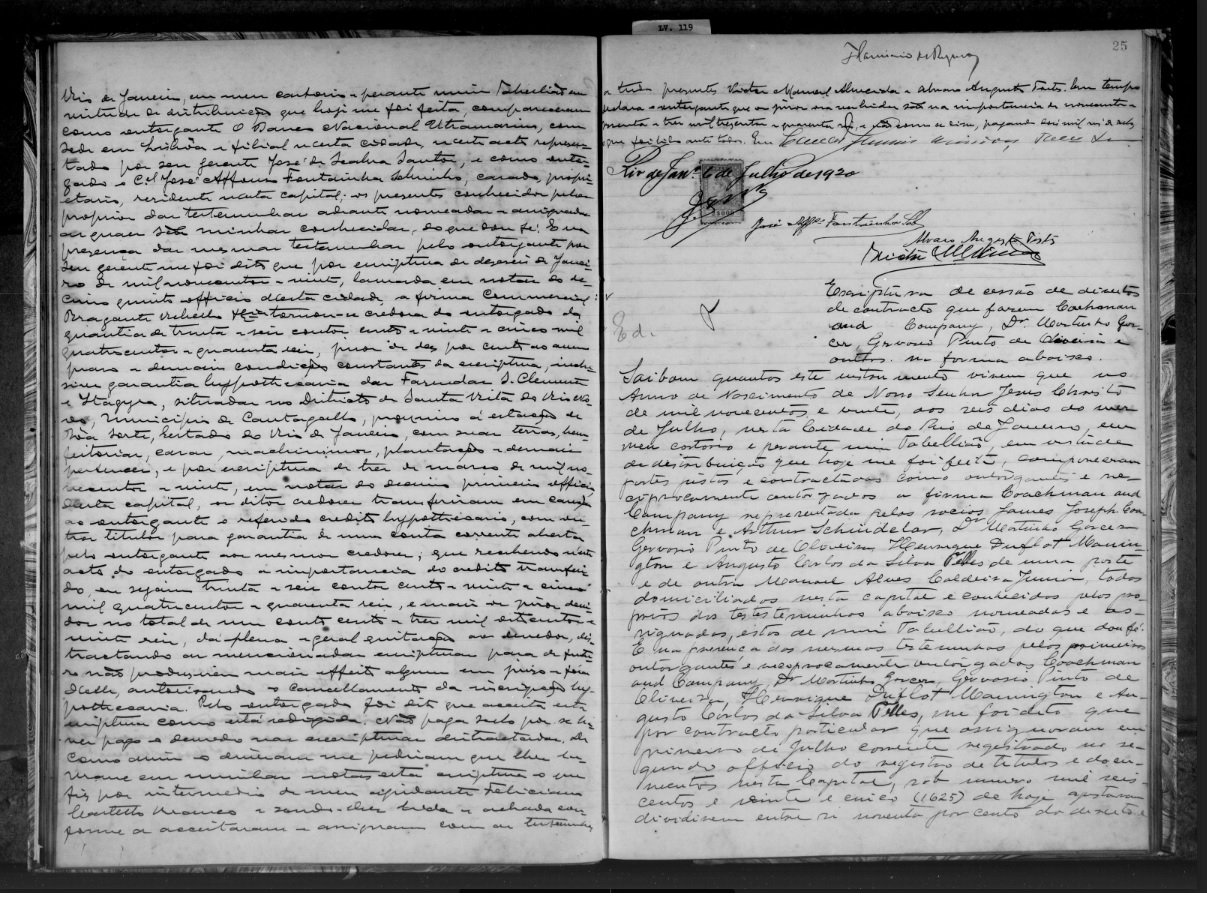 LV. 119
Rio de Janeiro, em meu cartorio e perante mim Tabellião em
virtude de distribuição que hoje me foi feita, compareceram
como outorgante O Banco Nacional Ultramarino, com
séde em Lisbôa e filial nesta cidade, neste acto represen-
tado por seu gerente José de Seabra Santos, e como outor-
gado o Cel José Affonso Fontainha Sobrinho, casado, propri-
etario, residente nesta capital; os presentes conhecidos pelos
proprios das testemunhas adiante nomeadas e assignadas
as quaes são minhas conhecidas, do que dou fé. E em
presença das mesmas testemunhas pelo outorgante por
seu gerente me foi dito que por escriptura de dezeseis de Janei-
ro de mil novecentos e vinte, lavrada em notas do de-
cimo quinto officio desta cidade, a firma Commercial
Bragante tornou-se credora do outorgado da
quantia de trinta e seis contos cento e vinte e cinco mil
quatrocentos e quarenta reis, juros de dez por cento ao anno
prazo e demais condições constantes da escriptura, inclu-
sive garantia hypothecaria das Fazendas S. Clemente
e Itagyra, situadas no Districto de Santa Rita do Rio Ne-
gro, Municipio de Cantagallo, proximo á estação de
Bôa Sorte, Estado do Rio de Janeiro, com suas terras, bem
feitorias, casas, machinismos, plantações e demais
pertences, e por escriptura de tres de março de mil no-
vecentos e vinte, em notas do decimo primeiro officio
desta capital, os ditos credores transferiram em caução
ao outorgante o referido credito hypothecario, com ou-
tros titulos para garantia de uma conta corrente aberta
pelo outorgante aos mesmos credores; que recebendo neste
acto do outorgado a importancia do credito transferi-
do, ou sejam trinta e seis contos cento e vinte e cinco
mil quatrocentos e quarenta reis, e mais os juros devi-
dos no total de um conto cento e tres mil oitocentos e
vinte reis, dá plena e geral quitação ao devedor, dis-
tractando as mencionadas escripturas para de futu-
ro não produzirem mais effeito algum em juizo e fóra
delle, autorisando o cancellamento da inscripção hy-
pothecaria. Pelo outorgado foi dito que acceita esta
escriptura como está redigida. Não paga sello por se ha-
ver pago o devido nas escripturas distractadas. De
como assim o disseram me pediram que lhes la-
vrasse em minhas notas esta escriptura o que
fiz por intermedio de meu ajudante Feliciano
e sendo-lhes lida e achada con-
forme a acceitaram e assignam com as testemunhas
25
a tudo presentes Victor Manoel Almeida e Alvaro Augusto Porto. Em tempo
declara o outorgante que os juros ora recebidos são na importancia de novecentos e
Rio de Janº 6 de Julho de 1920
José Affº Fontainha Sobº
Alvaro Augusto Porto
Victor M Almeida
Ed.
Escriptura de cessão de direitos
de contracto que fazem Coachman
and Company, Dr. Martinho Gar-
cez, Gervasio Pinto de Oliveira e
outros. na forma abaixo.
Saibam quantos este instrumento virem que no
Anno do Nascimento de Nosso Senhor Jesus Christo
de mil novecentos e vinte, aos seis dias do mez
de Julho, nesta Cidade do Rio de Janeiro, em
meu cartorio e perante mim Tabellião, em virtude
de distribuição que hoje me foi feita, compareceram
partes justas e contractadas como outorgantes e re-
ciprocamente outorgados a firma Coachman and
Company representada pelos socios James Joseph Coa-
chman e Arthur Schindelar, Dr Martinho Garcez
Gervasio Pinto de Oliveira, Henrique Duflot Manin-
gton e Augusto Carlos da Silva Telles de uma parte
e de outra Manoel Alves Caldeira Junior, todos
domiciliados nesta capital e conhecidos pelos pro
prios das testestemunhas abaixo nomeadas e as-
signadas, estas de mim Tabellião, do que dou fé.
E na presença das mesmas testemunhas pelos primeiros
outorgantes e reciprocamente outorgados Coachman
and Company, Dr Martinho Garcez, Gervasio Pinto de
Oliveira, Henrique Duflot Mannington e Au-
gusto Carlos da Silva Telles, me foi dito que
por contracto particular que assignaram em
primeiro de Julho corrente registrado no se-
gundo officio do registro de titulos e docu-
mentos nesta Capital, sob numero mil seis
centos e vinte e cinco (1625) de hoje ajustaram
dividirem entre si noventa por cento do direito